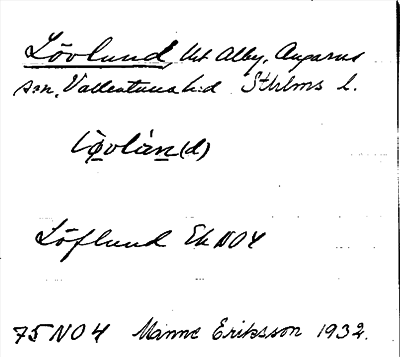 Lövlund, Ut Alby, Angarns
s:n, Vallentuna h:d Sthlms l.
Löflund Ek NO4
75 NO 4 Manne Eriksson 1932.